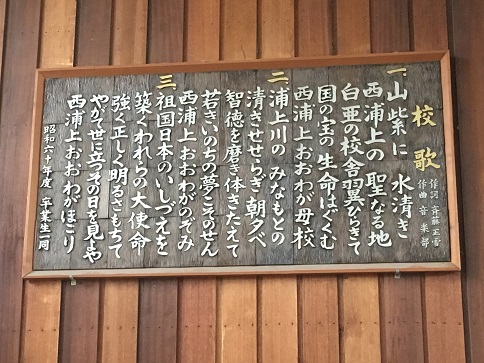 校歌
作詞 斉藤正雪
作曲 音楽部
一、山紫に 水清き
西浦上の 聖なる地
白亜の校舎翼ひらきて
国の宝の 生命はぐくむ
西浦上 おおわが母校
二、浦上川の みなもとの
清きせせらぎ 朝夕べ
智徳を磨き 体きたえて
若きいのちの 夢こそのせん
西浦上 おおわがのぞみ
三、祖国日本の いしづえを
築くわれらの 大使命
強く正しく 明るさもちて
やがて世に立つ その日を見まや
西浦上 おおわがほこり
昭和六十年度 卒業生一同